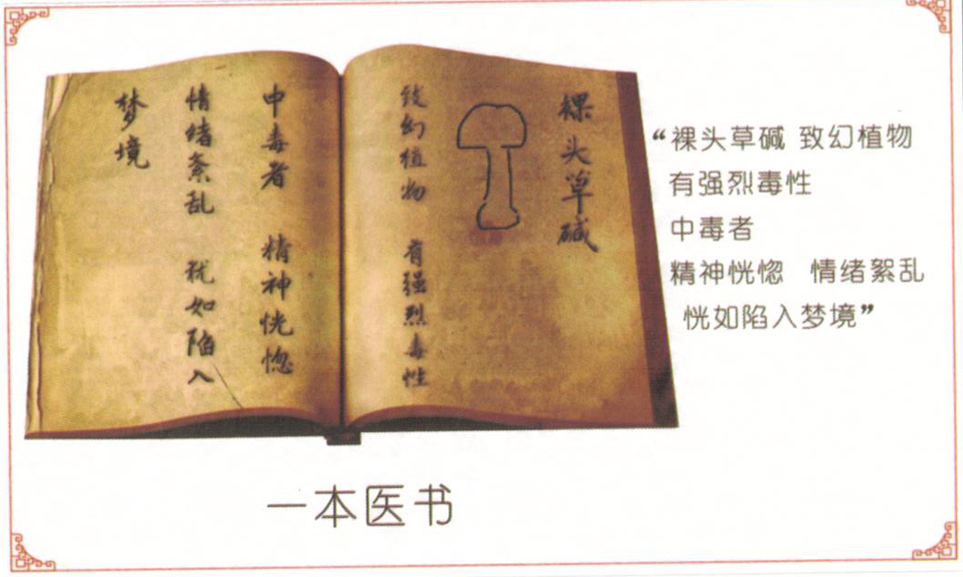 裸头草碱
致幻植物 有强烈毒性
中毒者 精神恍惚
情绪紊乱 犹如陷入
梦境
“裸头草碱 致幻植物
有强烈毒性
中毒者
精神恍惚 情绪絮乱
恍如陷入梦境”
一本医书